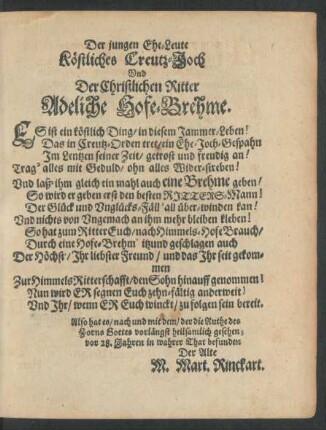 Der jungen Ehe-Leute
Köstliches Creutz-Joch
Und
Der Christlichen Ritter
Adeliche Hofe-Brehme.
ES ist ein köstlich Ding/ in diesem Jammer-Leben!
Das in Creutz-Orden tret/ ein Ehe-Joch-Gespahn
Im Lentzen seiner Zeit/ getrost und freudig an/
Trag' alles mit Geduld/ ohn alles Wider-streben!
Und laß' ihm gleich ein mahl auch eine Brehme geben/
So wird er geben erst den besten RITTERS-Mann!
Der Glück und Unglücks-Fäll' all über-winden kan!
Und nichts von Ungemach an ihm mehr bleiben kleben!
So hat zum Ritter Euch/ nach Himmels-Hofe Brauch/
Durch eine Hofe-Brehm' itzund geschlagen auch
Der Höchst'/ Ihr liebster Freund/ und das Ihr seit gekom-
men
Zur Himmels Ritterschafft/ den Sohn hinauff genommen!
Nun wird ER segnen Euch zehn-fältig anderweit/
Und Ihr/ wenn ER Euch winckt/ zu folgen sein bereit.
Also hat es/ nach und mit dem/ der die Ruthe des
Zorns Gottes vorlängst heilsamlich gesehen;
vor 28. Jahren in wahrer That befunden
Der Alte
M. Mart. Rinckart.